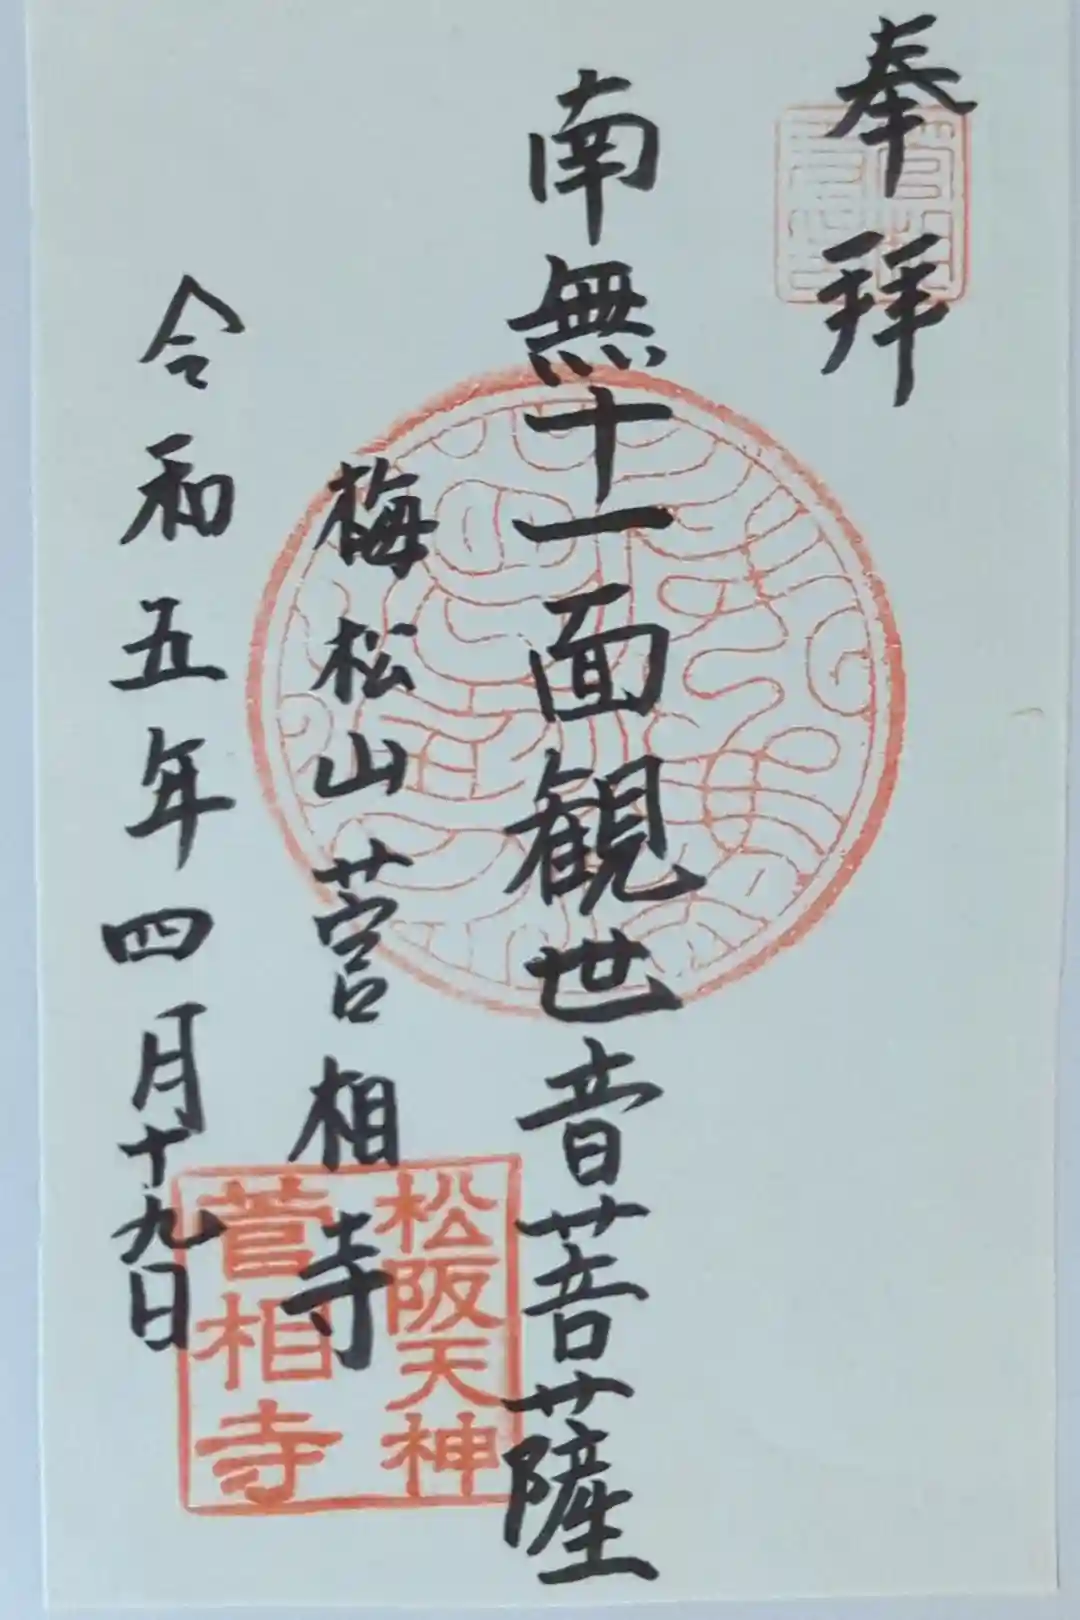 奉拜
南無十一面観世音菩薩
梅松山菅相寺
令和五年四月十九日
松阪天神
菅相寺